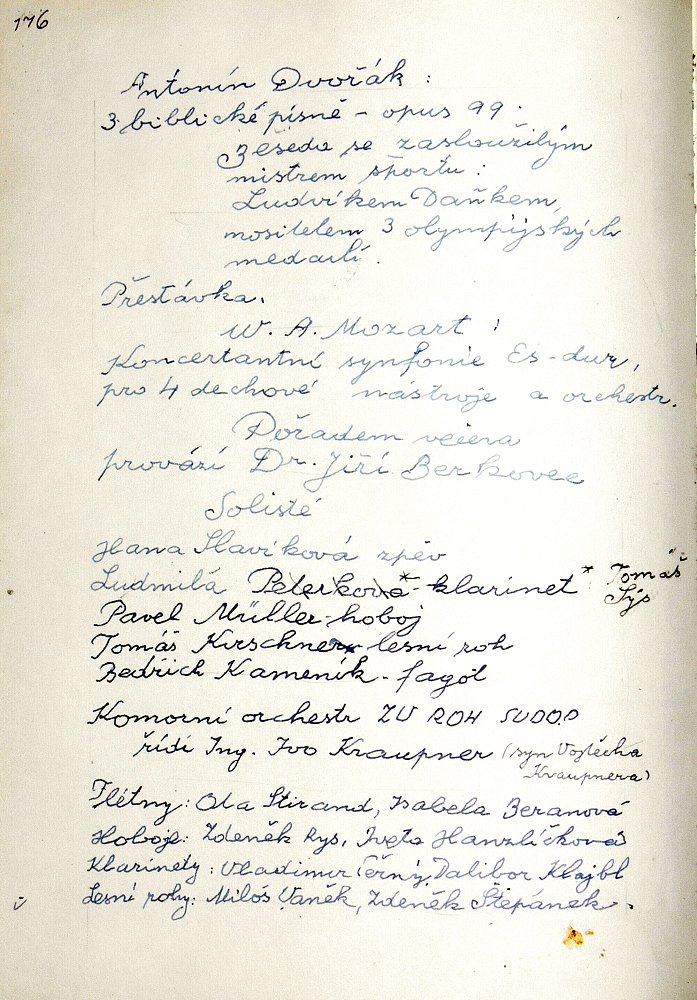 116
Antonín Dvořák :
3 biblické písně - opus 99.
Beseda se zasloužilým
mistrem sportu :
Ludvíkem Daňkem,
nositelem 3 olympijských
medailí.
Přestávka.
W. A. Mozart :
Koncertantní synfonie Es-dur,
pro 4 dechové nástroje a orchestr.
Pořadem večera
provází Dr. Jiří Berkovec
Solisté
Hana Slavíková zpěv
Ludmilá Peterková* - klarinet * Tomáš
Sýs
Pavel Müller - hoboj
Tomáš Kirschner - lesní roh
Bedřich Kameník - fagot
Komorní orchestr ZV ROH SUDOP
řídí Ing. Ivo Kraupner (syn Vojtěcha
Kraupnera)
Flétny: Ota Štirand, Isabela Beranová
Hoboje: Zdeněk Rys, Iveta Hanzlíčková
Klarinety : Vladimír Černý, Dalibor Klajbl
Lesní rohy: Miloš Vaněk, Zdeněk Štěpánek.